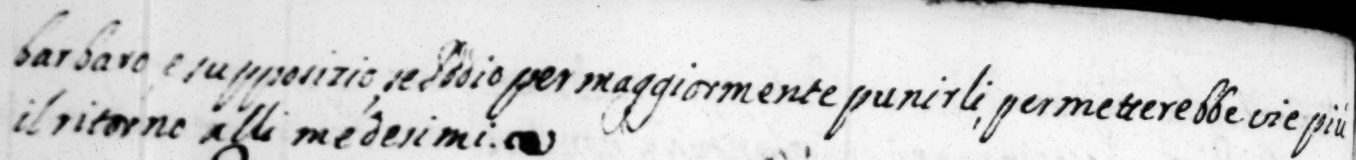 barbaro, e suppositio, se Iddio per maggiormente punirli, permetterebbe vie più
il ritorno alli medesimi.